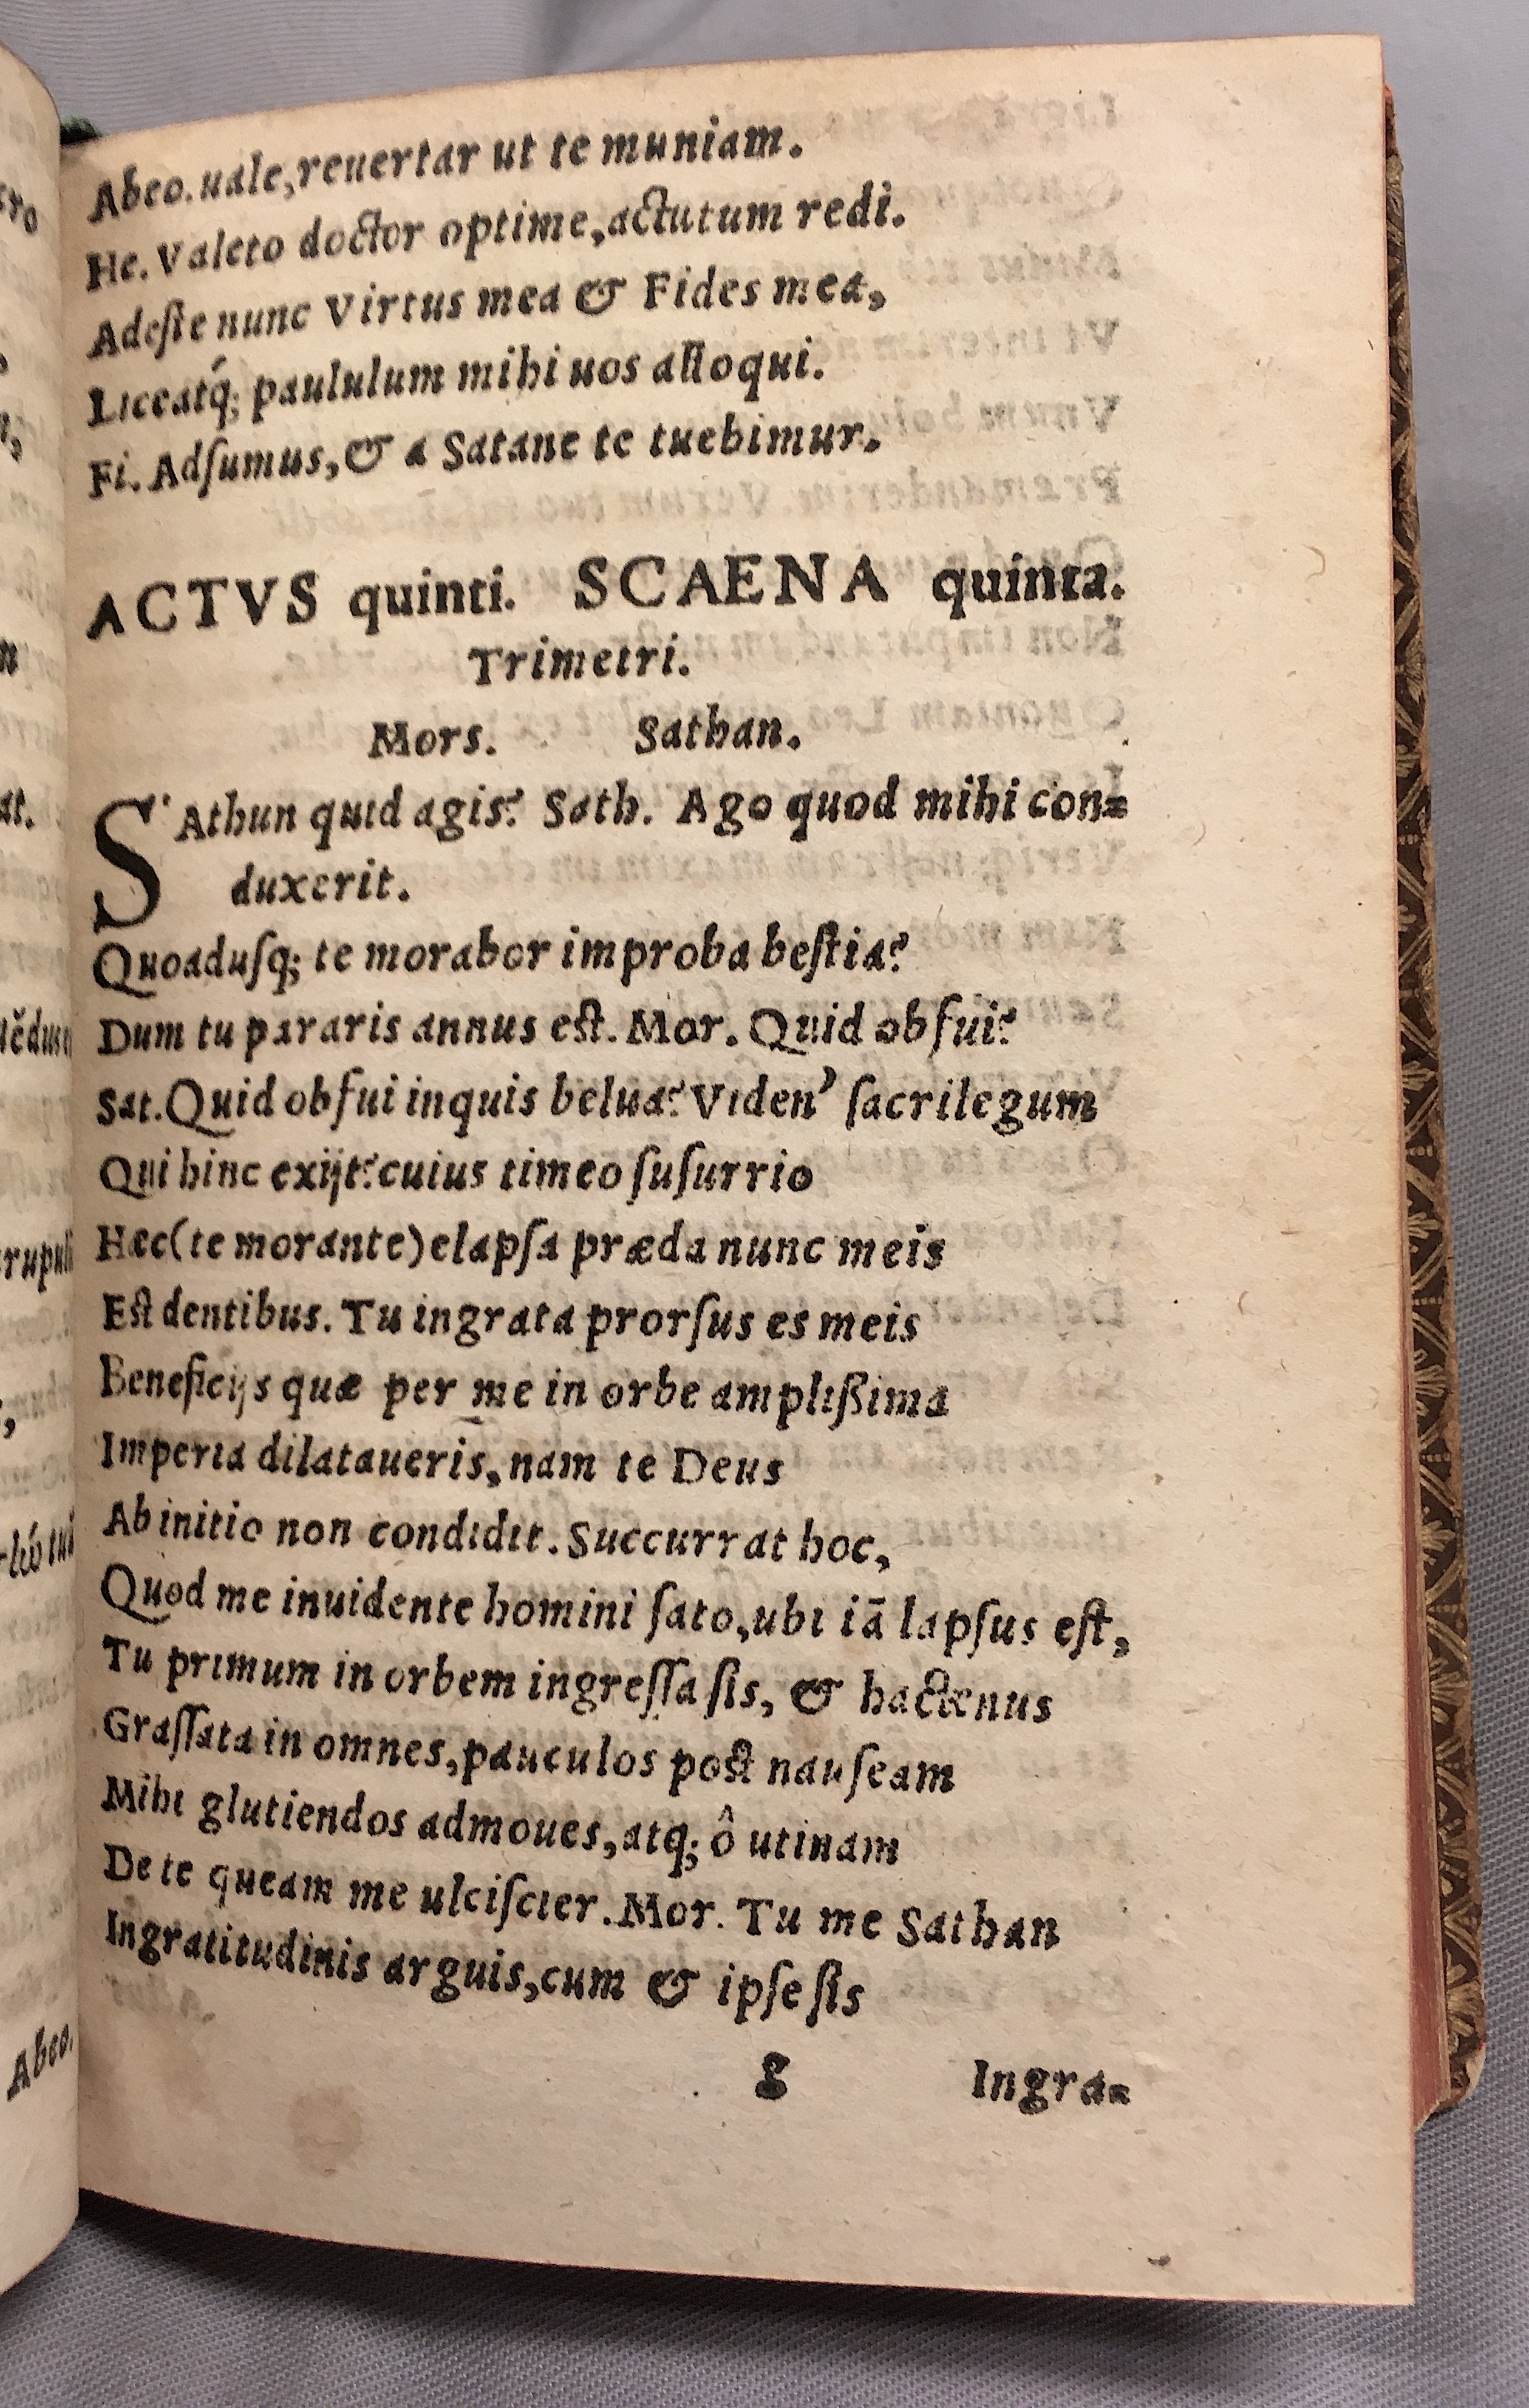 Abeo. uale, reuertar ut te muniam.
He. Valeto doctor optime, actutum redi.
Adeſte nunc Virtus mea & Fides mea,
Liceatq́; paululum mihi uos alloqui.
Fi. Adſumus, & a Satane te tuebimur.
ACTVS quinti. SCAENA quinta.
Trimetri.
Mors. Sathan.
SAthan quid agis? Sath. Ago quod mihi con=
duxerit.
Quoaduſq; te morabor improba beſtia?
Dum tu pararis annus eſt. Mor. Quid obfui?
Sat. Quid obfui inquis belua? Viden' ſacrilegum
Qui hinc exijt? cuius timeo ſuſurrio
Hæc (te morante) elapſa præda nunc meis
Eſt dentibus. Tu ingrata prorſus es meis
Beneficijs quæ per me in orbe ampliſsima
Imperia dilataueris, nam te Deus
Ab initio non condidit. Succurrat hoc,
Quod me inuidente homini ſato, ubi iā lapſus eſt,
Tu primum in orbem ingreſſa ſis, & hactenus
Graſſata in omnes, pauculos poſt nauſeam
Mihi glutiendos admoues, atq; ô utinam
De te queam me ulciſcier. Mor. Tu me Sathan
Ingratitudinis arguis, cum & ipſe ſis
g Ingra=
Abeo.